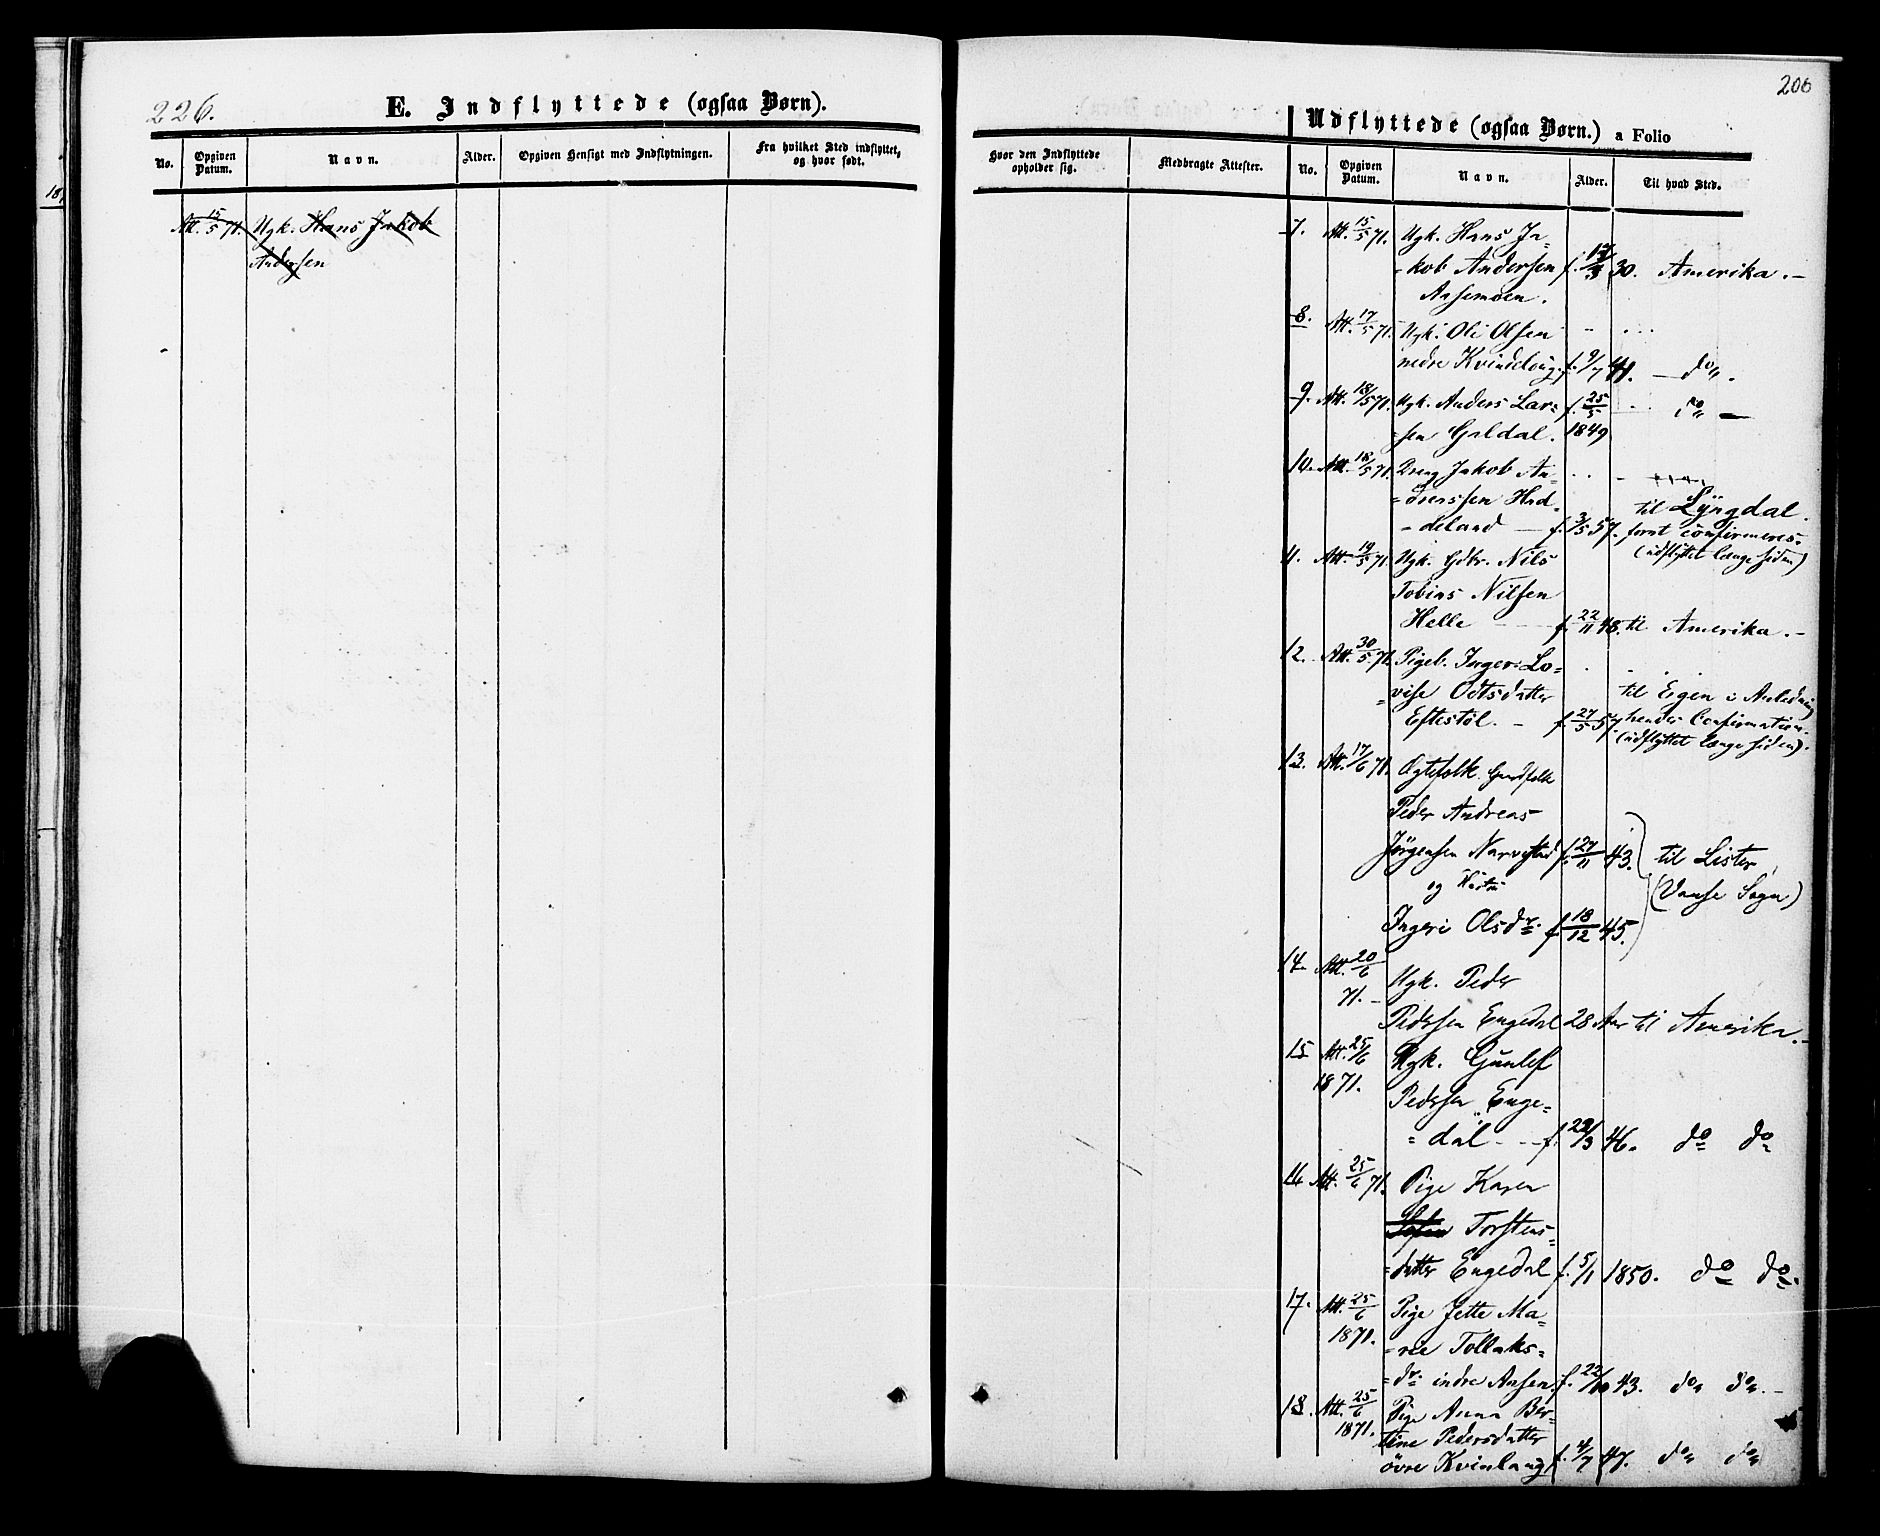 226.
E. Indflyttede (ogsaa Børn).
No.
Opgiven Datum.
Navn.
Alder.
Opgiven Hensigt med Indflytningen.
Fra hvilket Sted indflyttet, og hvor født.
Att. 15/5 71. Ugk. Hans Jakob
Andersen
206
Udflyttede (ogsaa Børn.) a Folio
Hvor den Indflyttede opholder sig.
Medbragte Attester.
No.
Opgiven Datum.
Navn.
Alder.
Til hvad Sted.
7. Att. 15/5 71. Ugk. Hans Ja-
-kob Andersen f. 30. Amerika.-
8. Att. 17/5 71. Ugk. Ole Olsen
nedre Kvindelaug. f. 9/7 41. - do.
9. Att. 18/5 71. Ugk. Anders Lar- f. 25/5 do -
-sen Galdal. 1849
10. Att. 18/5 71. Dreng Jakob An-
-dreassen Had- til Lyngdal.
-deland f. 3/5 57. forat confirmeres.
(udflyttet længe siden)
11. Att. 19/5 71. Ugk. Gdbr. Nils
Tobias Nilsen
Helle f. 22/11 48. til Amerika.-
12. Att. 30/5 71. Pigeb. Inger Lo-
-vise Odtsdatter til Egen i Anledning
Eftestöl. - f. 27/5 57. hendes Confirmation.
(udflyttet længe siden).
13. Att. 17/6 71. Ægtefolk. Gaardfolk
Peder Andreas
Jörgensen Narvestad f. 27/11 43. til Lister
og Hustru (Vanse Sogn)
Ingeri Olsdr. f. 18/12 45.
14. Att. 20/6 71.- Ugk. Peder
Pedersen Engedal 28 Aar til Amerika.-
15 Att. 25/6 1871. Ugk. Gunlef
Pedersen Enge-
-dal - - f. 46. do do
16 Att. 25/6 71. Pige Karen
Torstens-
-datter Engedal f. 5/1 1850. do do.
17. Att. 25/6 1871. Pige Jette Ma-
-rie Tollaks-
-dr. indre Aasen. f. 22/10 43. do do.-
18. Att. 25/6 1871. Pige Anna Ber-
tine Pedersdatter
övre Kvinlaug f. 4/7 47. do do